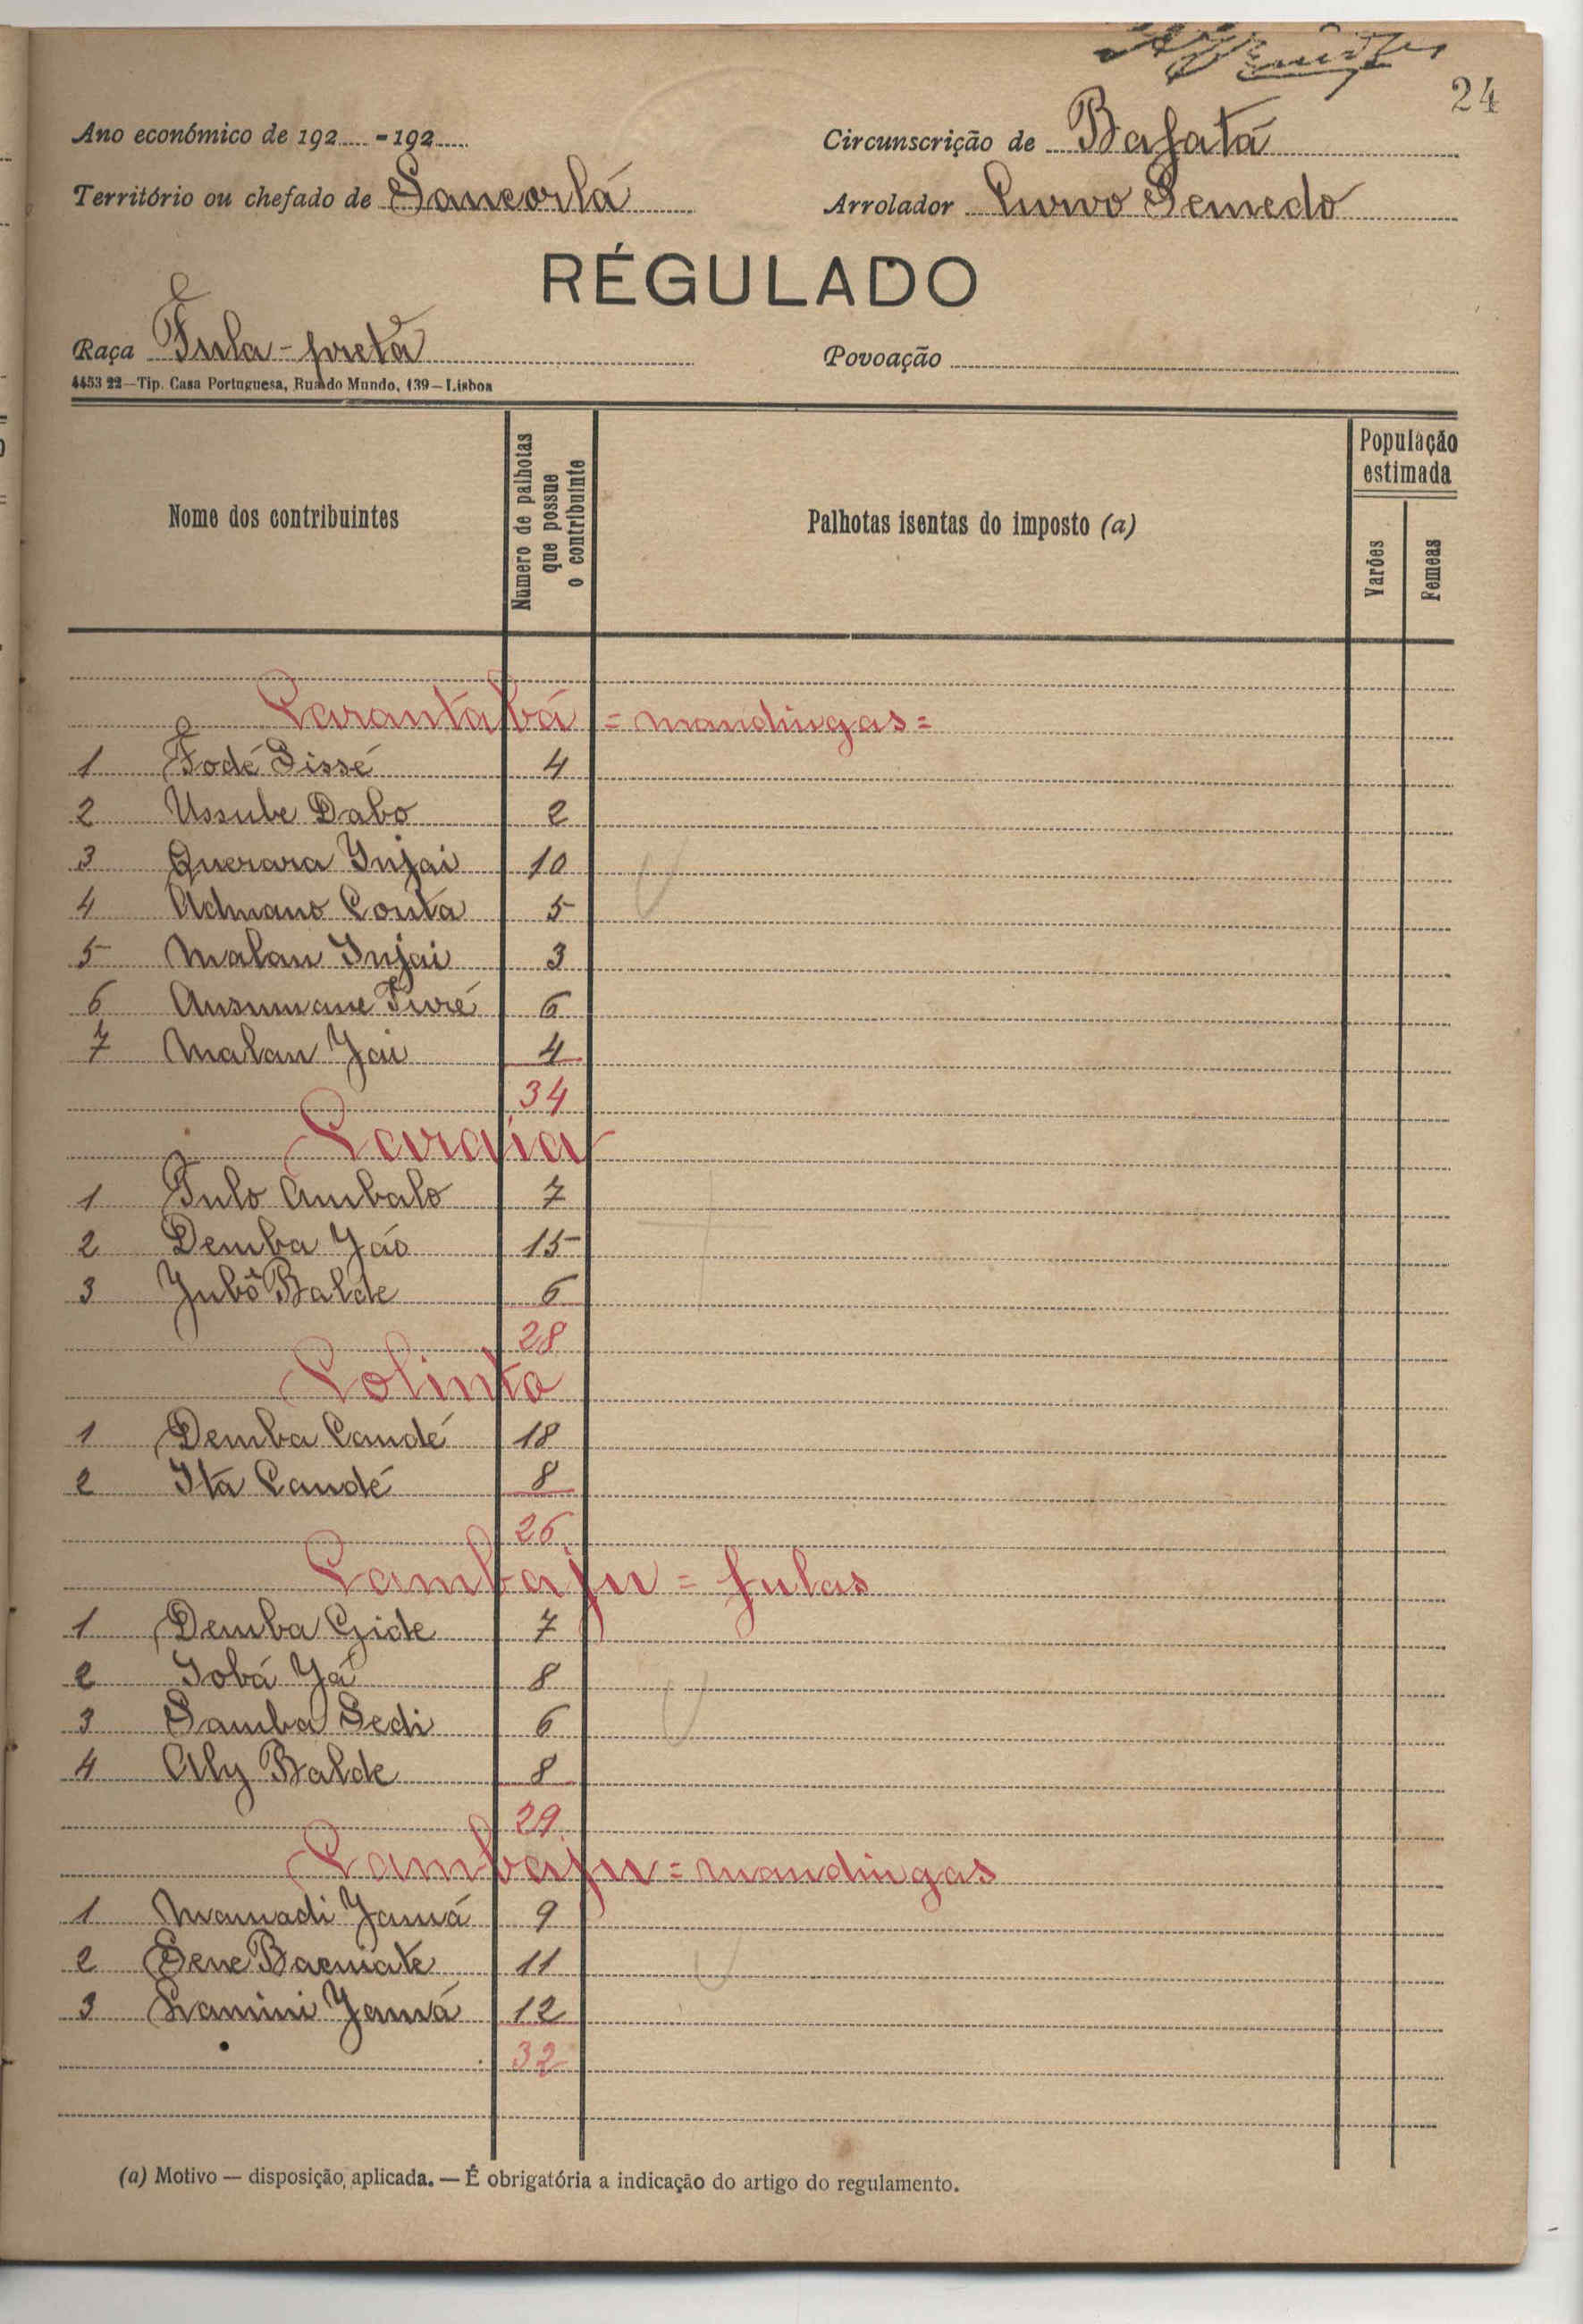 24
Ano económico de 192..... - 192.....
Circunscrição de Bafatá
Território ou chefado de Sancorlá
Arrolador Curvo Semedo
RÉGULADO
Raça Fula-preta
Povoação
4453 22—Tip. Casa Portuguesa, Rua do Mundo, 139—Lisboa
Nome dos contribuintes
Número de palhotas que possue o contribuinte
Palhotas isentas do imposto (a)
População estimada
Varões
Femeas
Carantabá = mandingas =
1 Fodé Sissé 4
2 Ussube Dabo 2
3 Querara Injai 10
4 Admano Conta 5
5 Malan Injai 3
6 Ansumane Turé 6
7 Malan Jai 4
34
Caraia
1 Tulo Ambalo 7
2 Demba Jáo 15
3 Jubô Balde 6
28
Colinto
1 Demba Candé 18
2 Ita Candé 8
26
Cambaju = fulas
1 Demba Gide 7
2 Iobá Já 8
3 Samba Sedi 6
4 Aly Balde 8
29
Cambaju = mandingas
1 Mamadi Jamá 9
2 Sene 11
3 Lamini Jamá 12
32
(a) Motivo — disposição aplicada. — É obrigatória a indicação do artigo do regulamento.